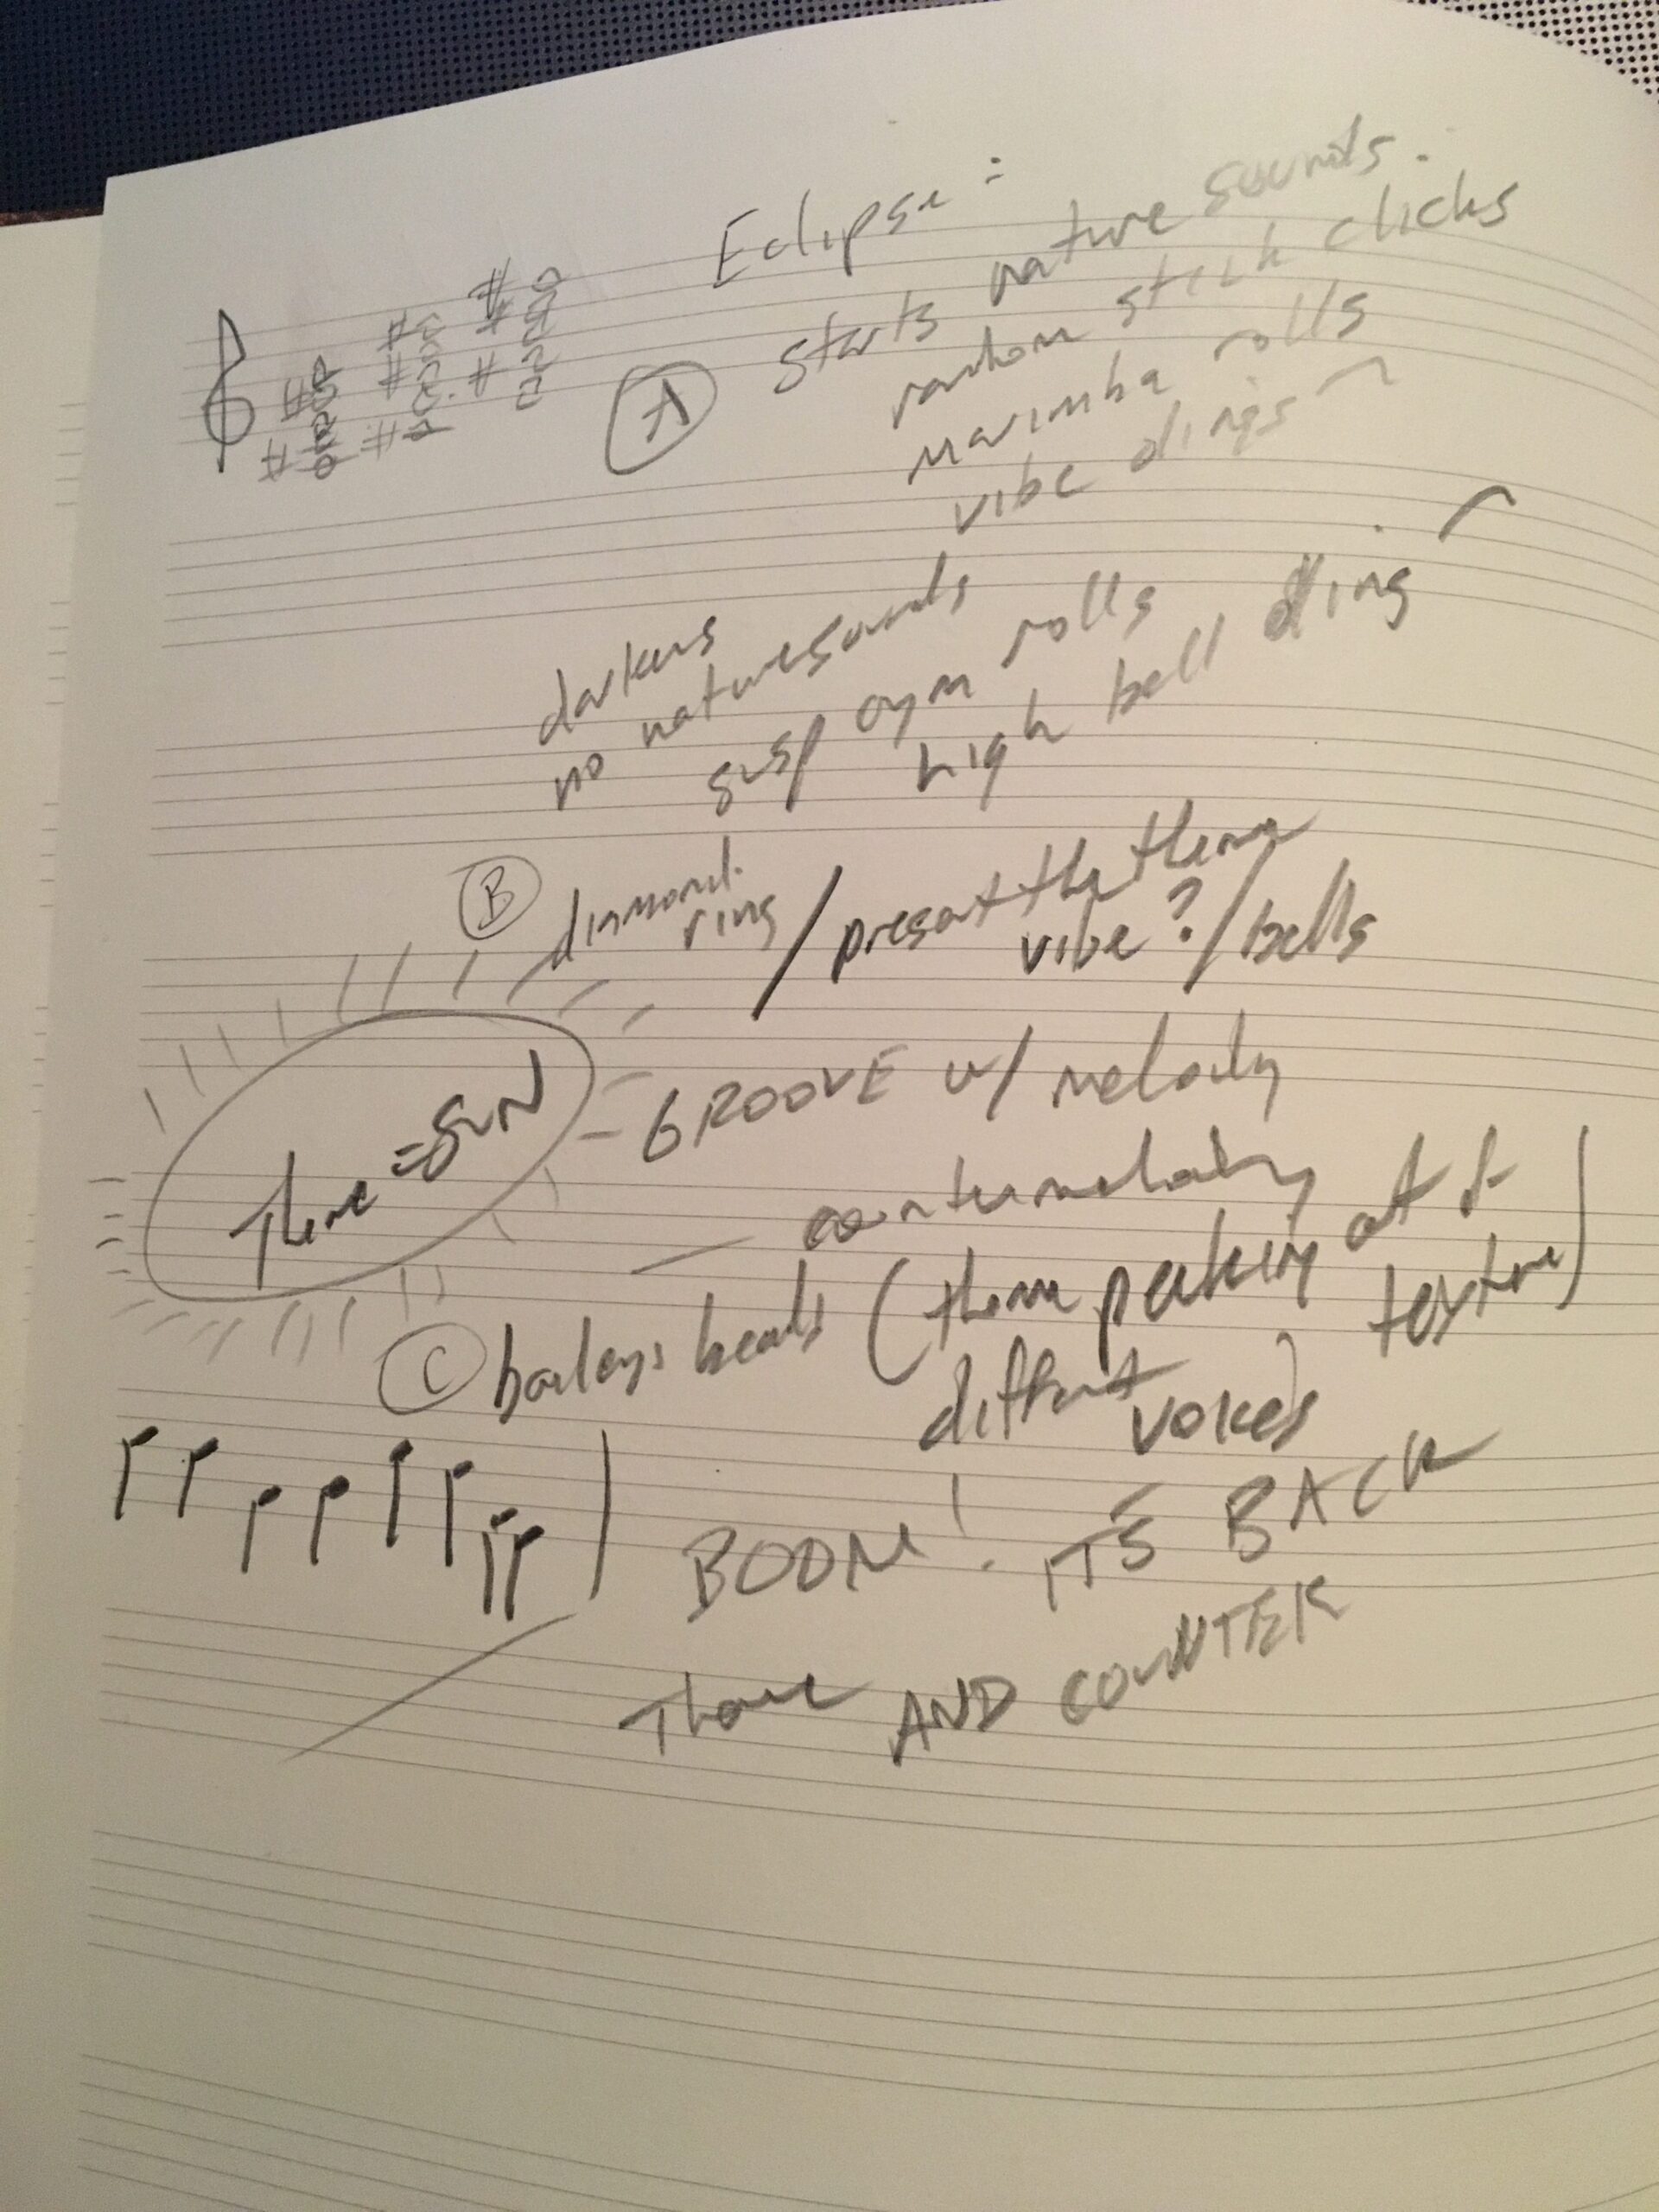 Eclipse:
A starts nature sounds.
random stick clicks
marimba rolls
vibe dings
darkens
no nature sounds
susp cym rolls
high bell ding
B diamond ring / present the theme
vibe? / bells
Theme = SUN
GROOVE w/ melody
countermelody
C baileys beads (theme peeking out of
different texture)
voices
BOOM! ITS BACK
Theme AND COUNTER